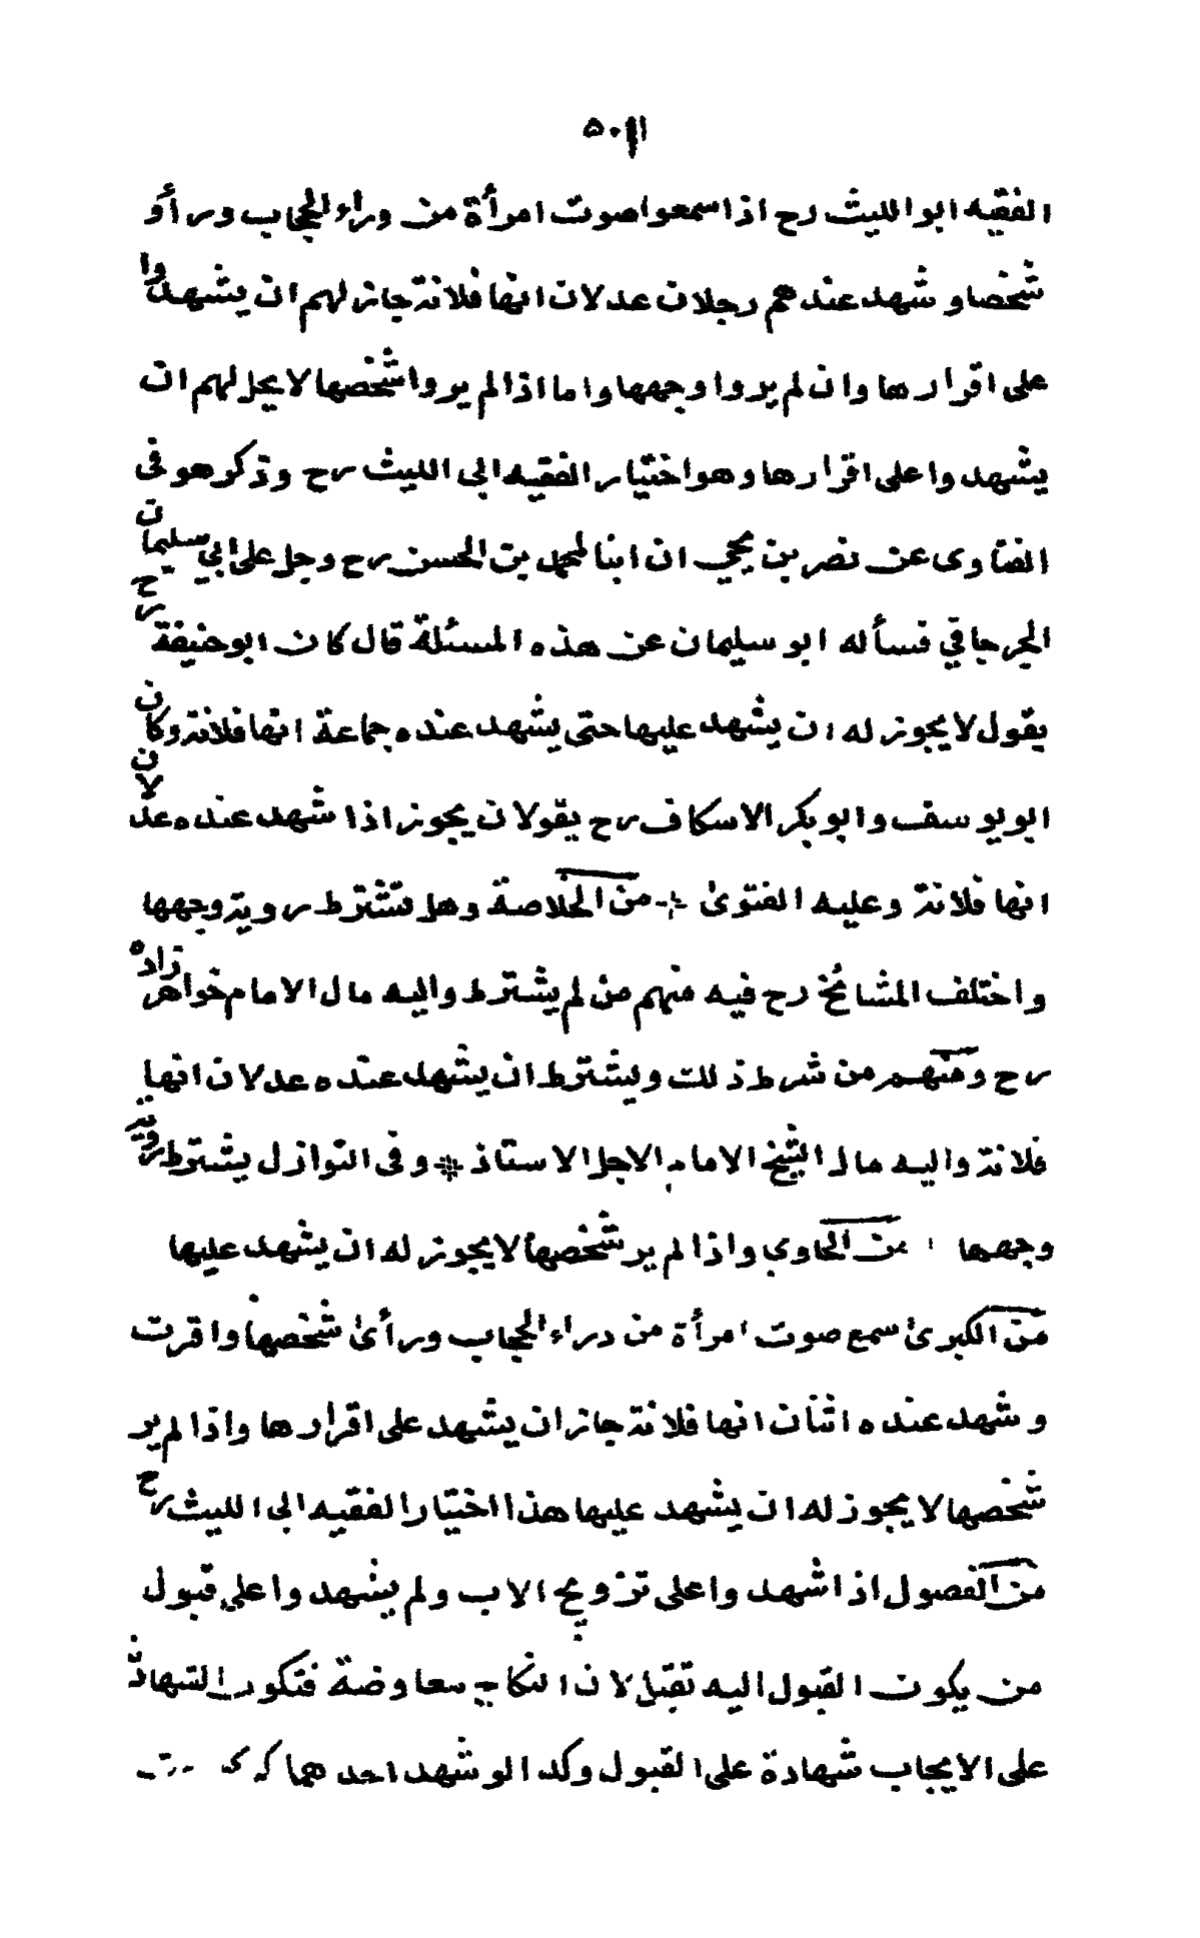 الفقيه ابوالليث رح اذا سمعوا صوت امرأة من وراء الحجاب ورأو
شخصا وشهد عندهم رجلان عدلان انها فلانة جاز لهم ان يشهدوا
على اقرارها وان لم يروا وجهها واما اذا لم يروا شخصها لا يحل لهم ان
يشهدوا على اقرارها وهو اختيار الفقيه ابى الليث رح وذكر هو فى
الفتاوى عن نصر بن يحيى ان ابنا لمحمد بن الحسن رح دخل على ابي سليمان
الجرجاني فسأله ابو سليمان عن هذه المسئلة قال كان ابو حنيفة رح
يقول لا يجوز له ان يشهد عليها حتى يشهد عنده جماعة انها فلانة وكان
ابو يوسف وابو بكر الاسكاف رح يقولان يجوز اذا شهد عنده عدلان
انها فلانة وعليه الفتوى * من الخلاصة وهل تشترط روية وجهها
واختلف المشائخ رح فيه منهم من لم يشترط واليه مال الامام خواهر زاده
رح ومنهم من شرط ذلك ويشترط ان يشهد عنده عدلان انها
فلانة واليه مال الشيخ الامام الاجل الاستاذ * وفى النوازل يشترط روية
وجهها من الحاوي واذا لم ير شخصها لا يجوز له ان يشهد عليها
من الكبرى سمع صوت امرأة من وراء الحجاب ورأى شخصها واقرت
وشهد عنده اثنان انها فلانة جاز ان يشهد على اقرارها واذا لم ير
شخصها لا يجوز له ان يشهد عليها هذا اختيار الفقيه ابى الليث رح
من الفصول اذا شهدوا على تزويج الاب ولم يشهدوا على قبول
من يكون القبول اليه تقبل لان النكاح معاوضة فتكون الشهادة
على الايجاب شهادة على القبول وكذا لو شهد احدهما